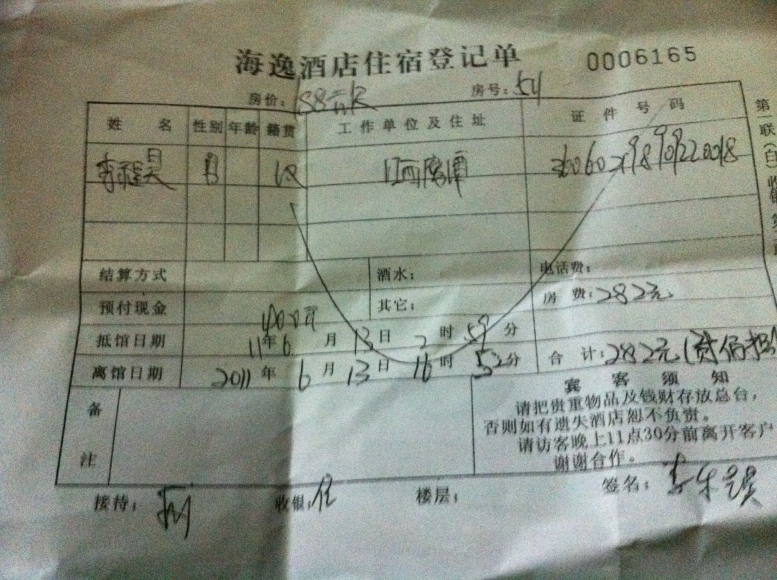 海逸酒店住宿登记单 0006165
房价: 房号:
姓 名 性别 年龄 籍贯 工作单位及住址 证 件 号 码
男 汉 江西鹰潭
结算方式 酒水: 电话费:
预付现金 400元 其它: 房 费:282元
抵馆日期 11年6月13日2时59分
离馆日期 2011年6月13日16时52分 合 计:282元(贰佰捌
备注
宾 客 须 知
请把贵重物品及钱财存放总台,
否则如有遗失酒店恕不负责。
请访客晚上11点30分前离开客户
谢谢合作。
接待: 收银: 楼层: 签名:
第一联(白)